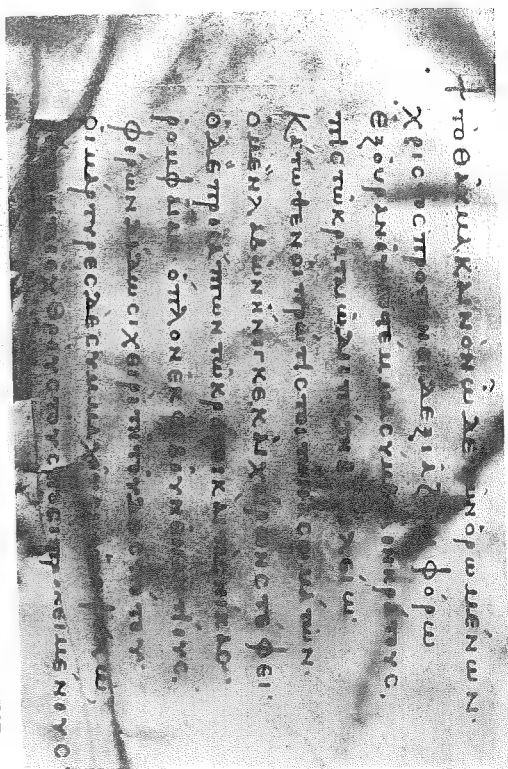 + τὸ θαῦμα καινὸν ὧδε τῶν ὁρωμένων·
χριστὸς προτείνει δεξιᾷ φόρω
ἐξ οὐρανοῦ τὸ στέμμα σύμβολον κράτους,
πιστῶ κραταιῶ
κάτωθεν οἱ πρώτιστοι τῶν ἀσωμάτων·
ὁ μὲν λαβὼν ἤνεγκε καὶ χαίρων στέφει·
ὁ δὲ προσάπτων τῶ κράτει καὶ τὰς νίκας·
ὅπλον ἐκφοβοῦν ἐναντίους·
φέρων δίδωσι χειρὶ τῇ τοῦ δεσπότου·
οἱ μάρτυρες δὲ συμμαχοῦσιν
ἐχθροὺς τοὺς ποσὶ προκειμένους.